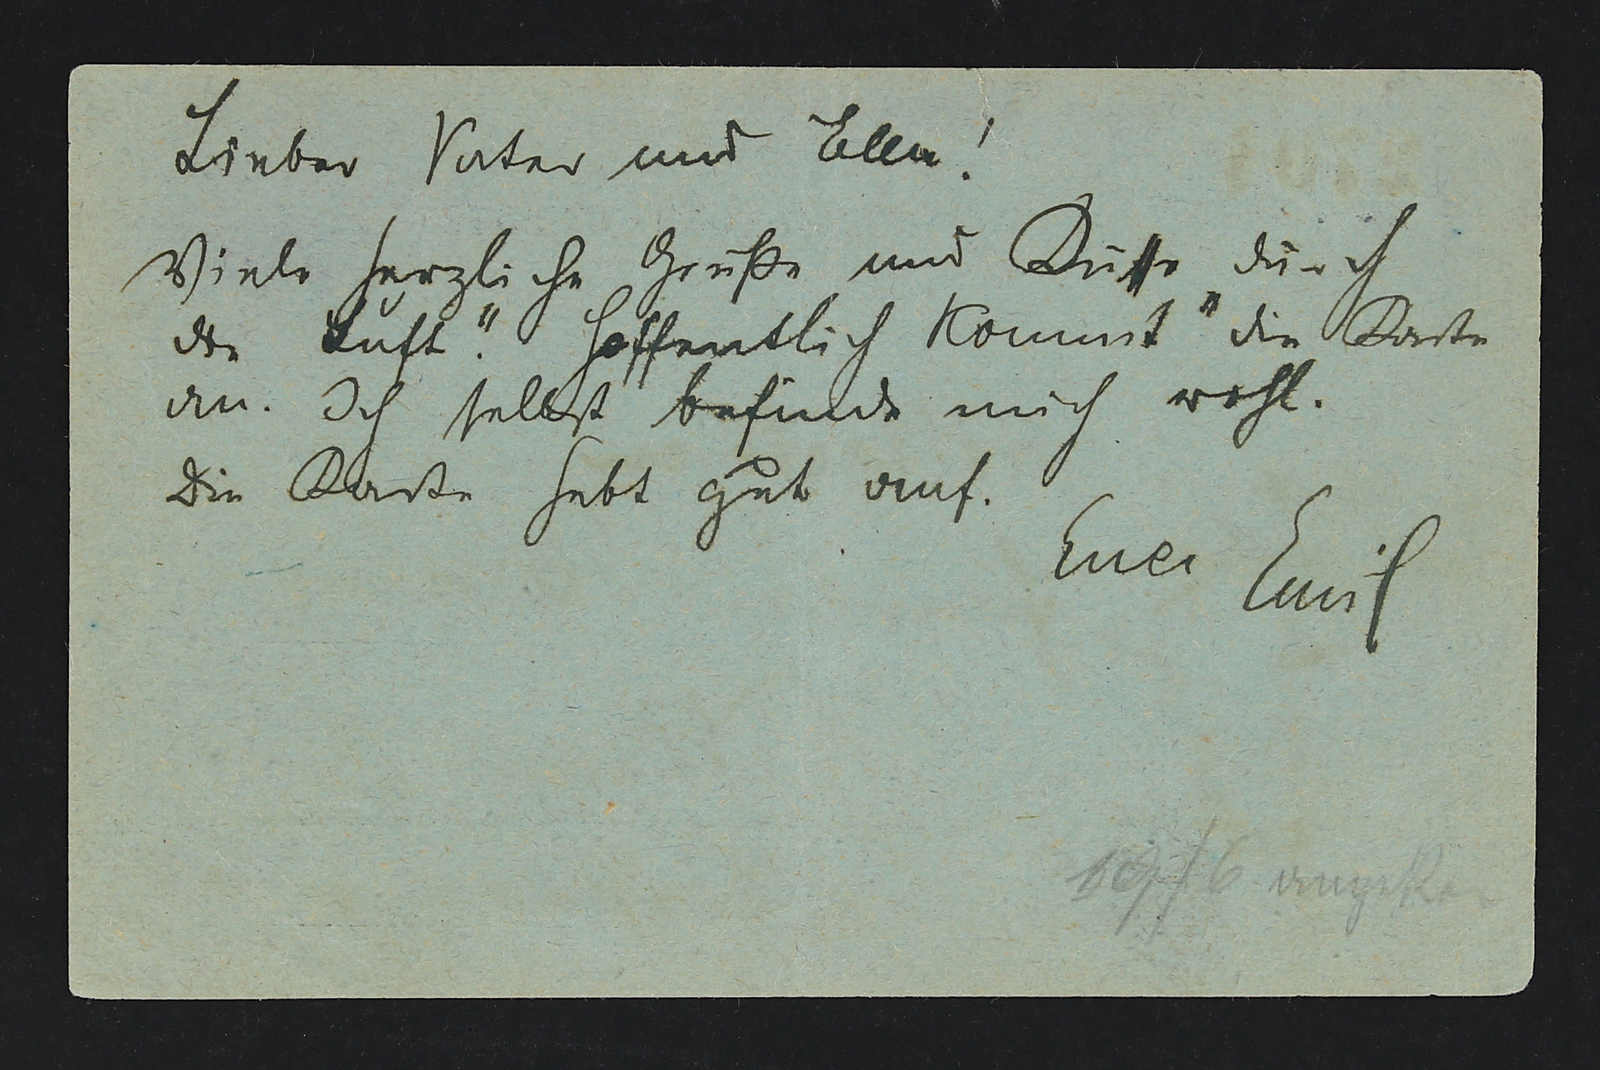 Lieber Vater und Ellen!
Viele herzliche Grüße und Küsse durch
die Luft". Hoffentlich kommt" die Karte
an. Ich selbst befinde mich wohl.
Die Karte hebt gut auf.
Euer Emil